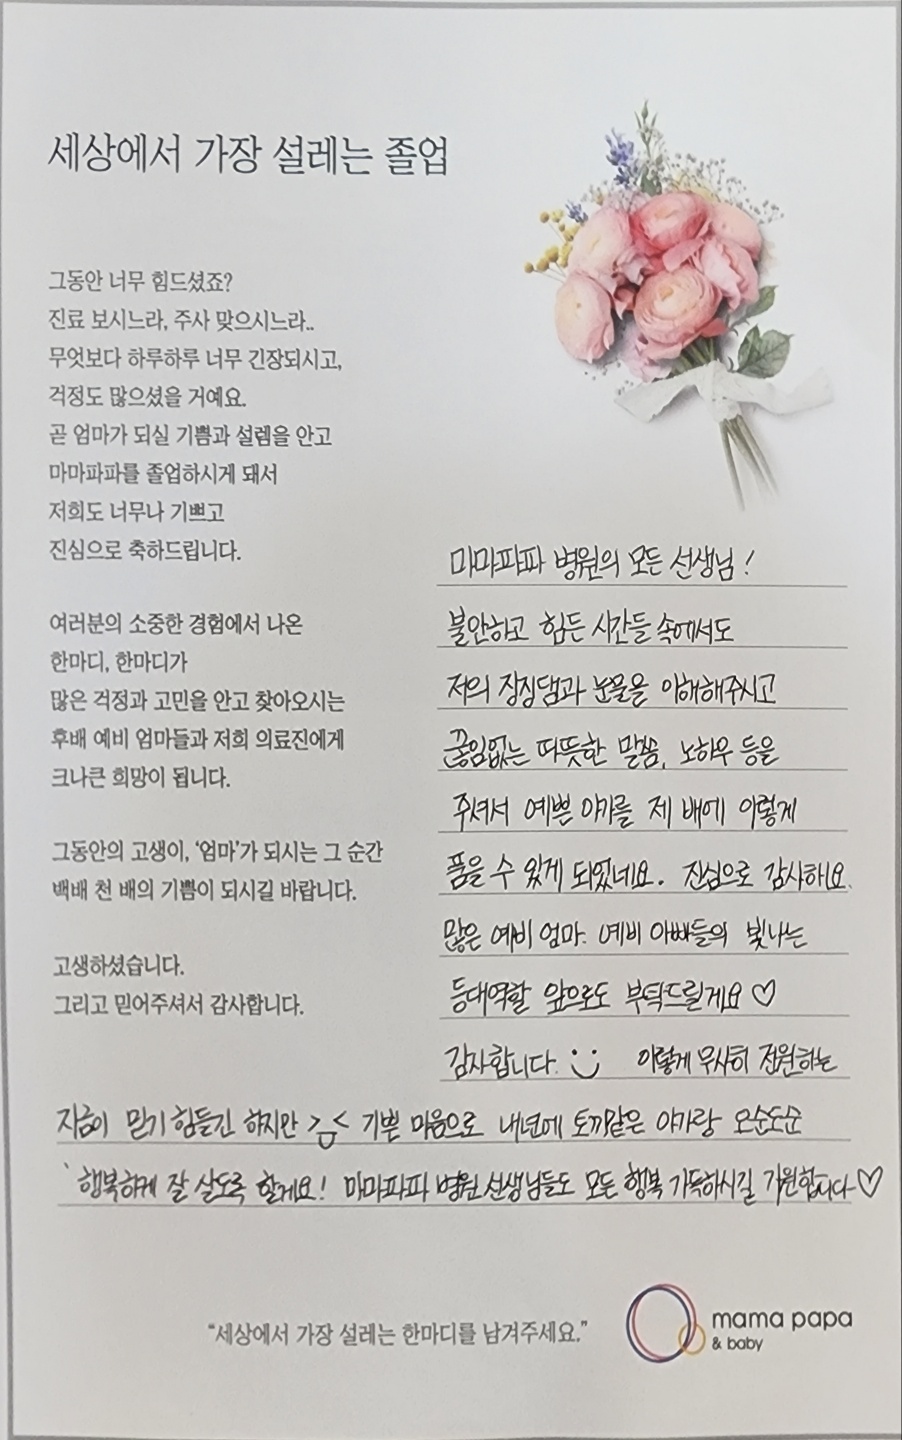 세상에서 가장 설레는 졸업
그동안 너무 힘드셨죠?
진료 보시느라, 주사 맞으시느라..
무엇보다 하루하루 너무 긴장되시고,
걱정도 많으셨을 거예요.
곧 엄마가 되실 기쁨과 설렘을 안고
마마파파를 졸업하시게 돼서
저희도 너무나 기쁘고
진심으로 축하드립니다.
여러분의 소중한 경험에서 나온
한마디, 한마디가
많은 걱정과 고민을 안고 찾아오시는
후배 예비 엄마들과 저희 의료진에게
크나큰 희망이 됩니다.
그동안의 고생이, ‘엄마’가 되시는 그 순간
백배 천 배의 기쁨이 되시길 바랍니다.
고생하셨습니다.
그리고 믿어주셔서 감사합니다.
마마파파 병원의 모든 선생님!
불안하고 힘든 시간들 속에서도
저의 징징댐과 눈물을 이해해주시고
끊임없는 따뜻한 말씀, 노하우 등을
주셔서 예쁜 아가를 제 배에 이렇게
품을 수 있게 되었네요. 진심으로 감사해요.
많은 예비 엄마. 예비 아빠들의 빛나는
등대역할 앞으로도 부탁드릴게요♡
감사합니다. 이렇게 무사히 전원하는
지금이 믿기 힘들긴 하지만 기쁜 마음으로 내년에 토끼같은 아가랑 오순도순
행복하게 잘 살도록 할게요! 마마파파 병원 선생님들도 모든 행복 가득하시길 기원합니다♡
“세상에서 가장 설레는 한마디를 남겨주세요.”
mama papa
& baby